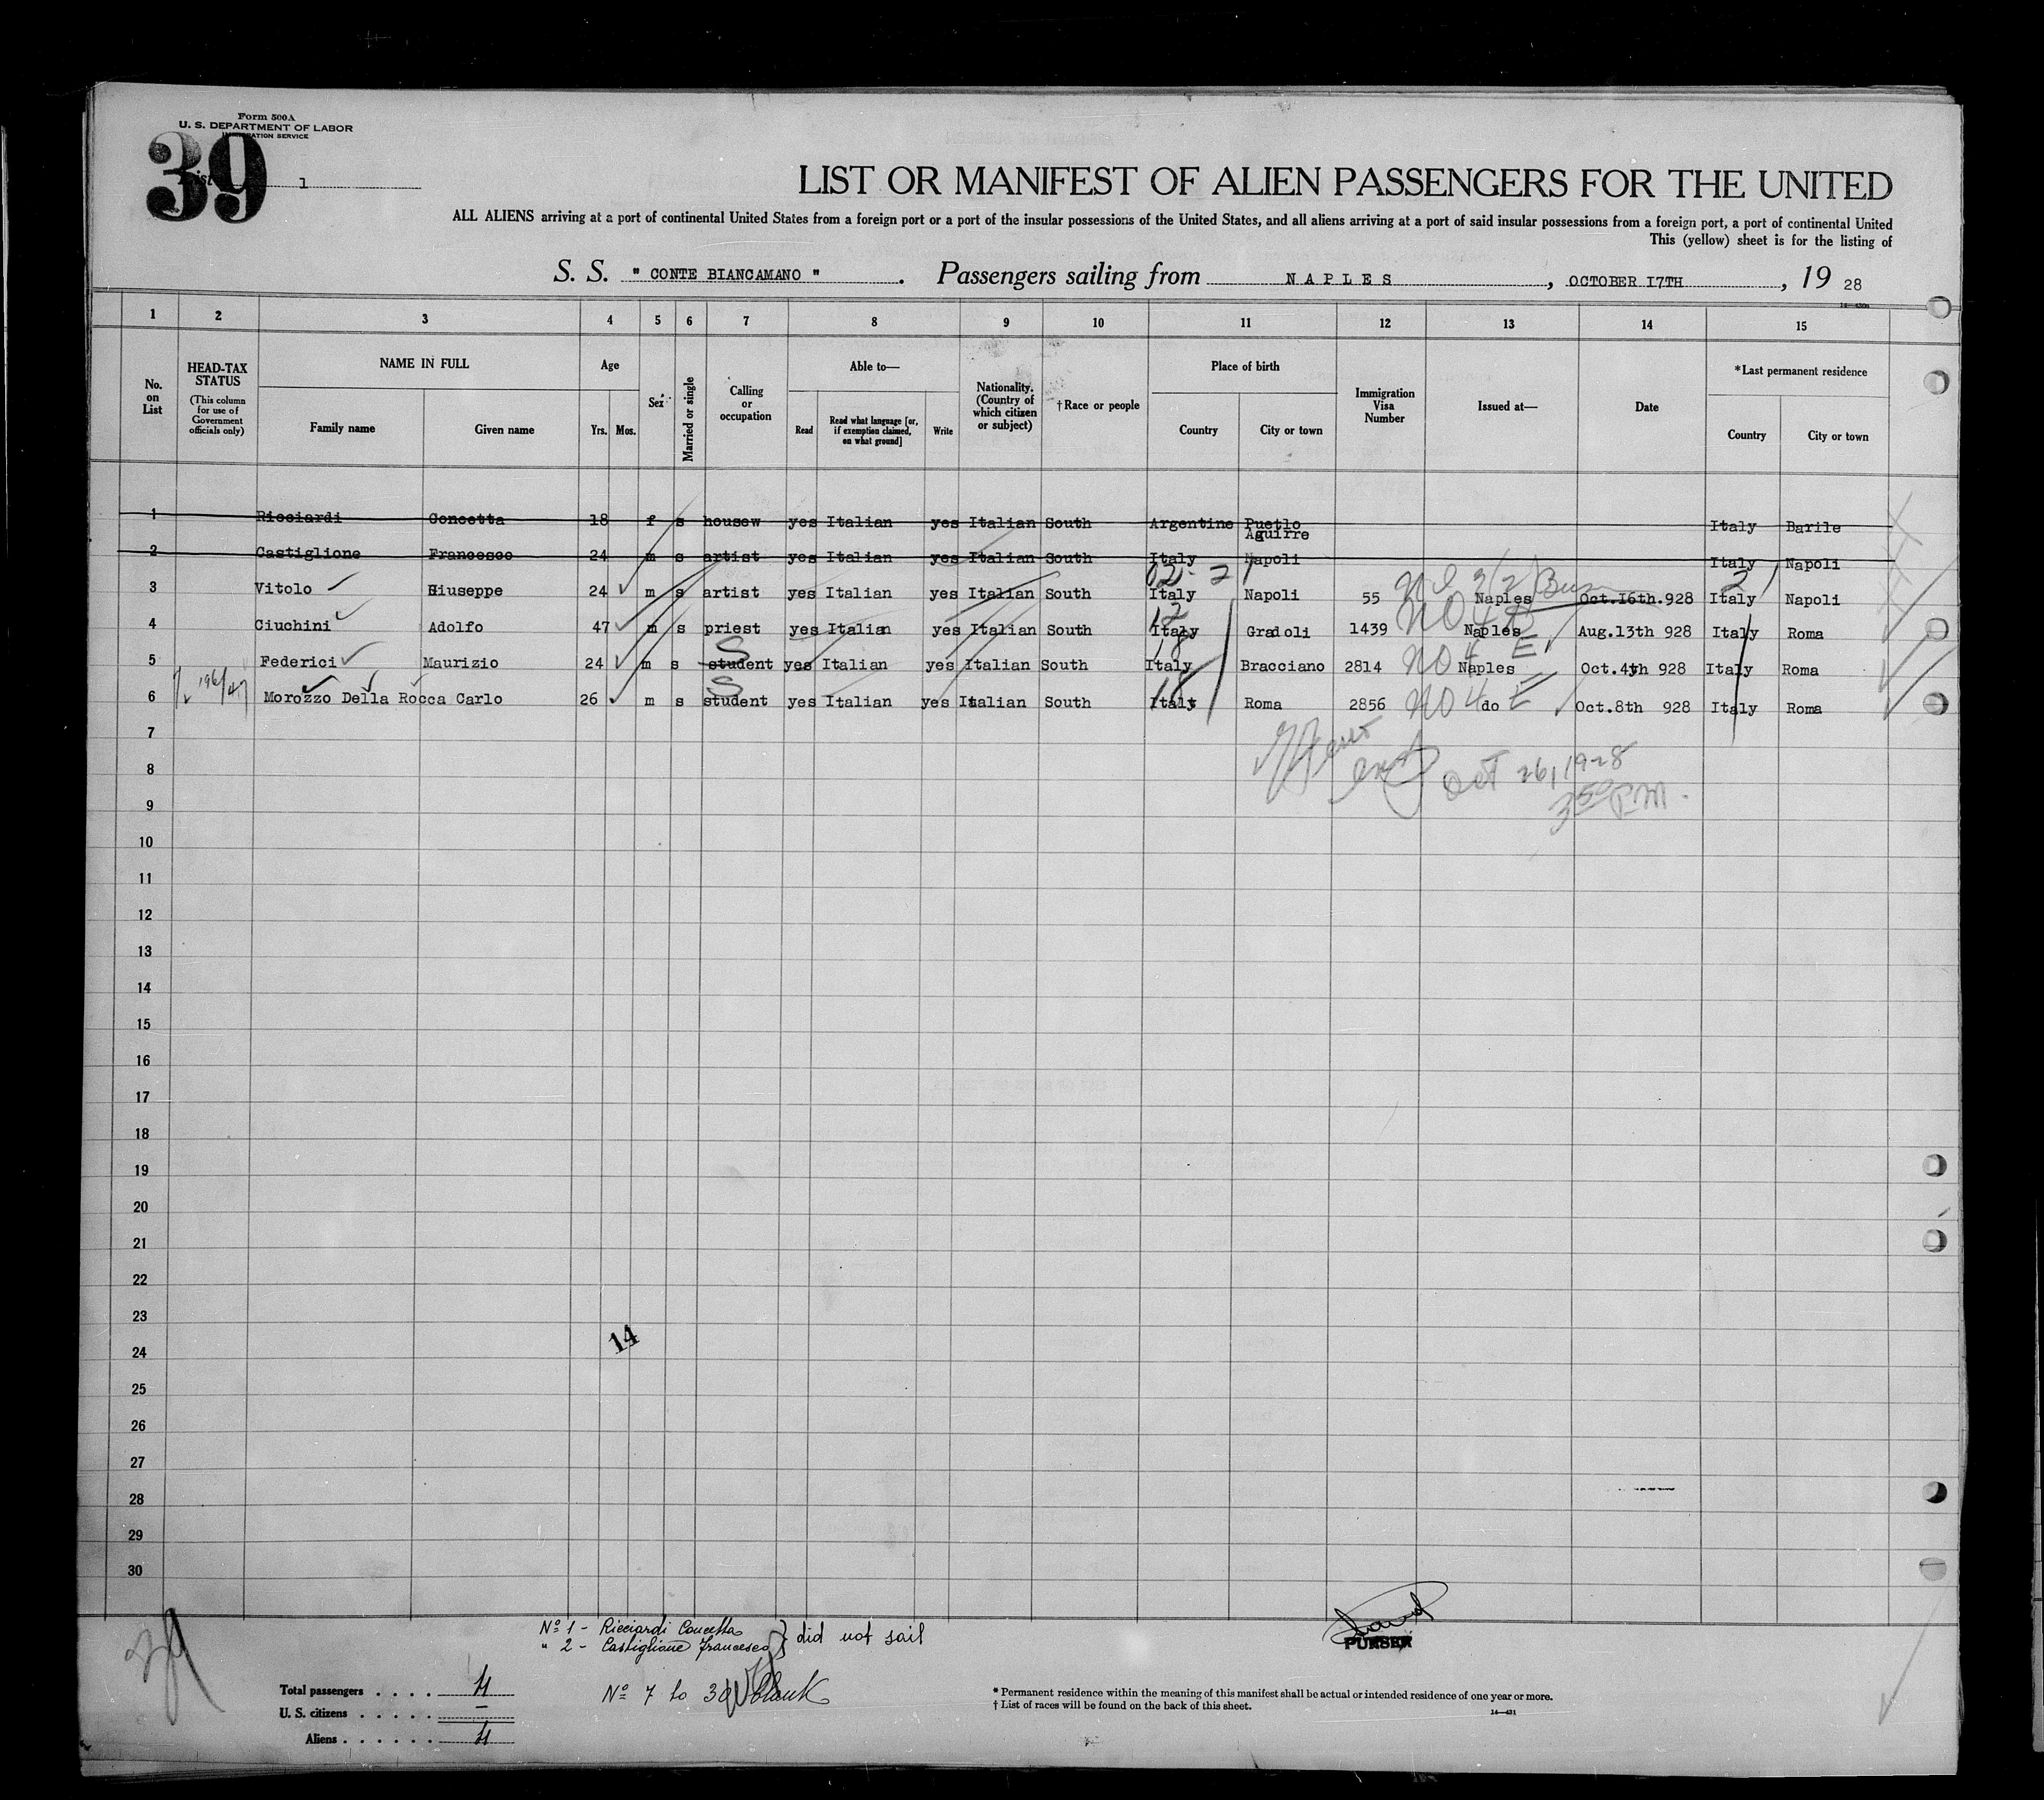 Form 500A
U. S. DEPARTMENT OF LABOR
IMMIGRATION SERVICE
39
List 1
LIST OR MANIFEST OF ALIEN PASSENGERS FOR THE UNITED
ALL ALIENS arriving at a port of continental United States from a foreign port or a port of the insular possessions of the United States, and all aliens arriving at a port of said insular possessions from a foreign port, a port of continental United
This (yellow) sheet is for the listing of
S. S. " CONTE BIANCAMANO ". Passengers sailing from NAPLES, OCTOBER I7TH, 19 28
1 2 3 4 5 6 7 8 9 10 11 12 13 14 15
No. on List
HEAD-TAX STATUS
(This column for use of Government officials only)
NAME IN FULL
Family name Given name
Age
Yrs. Mos.
Sex
Married or single
Calling or occupation
Able to—
Read Read what language [or, if exemption claimed, on what ground] Write
Nationality. (Country of which citizen or subject)
†Race or people
Place of birth
Country City or town
Immigration Visa Number
Issued at—
Date
*Last permanent residence
Country City or town
1 Ricciardi Concetta 18 f s housew yes Italian yes Italian South Argentine Puetlo Aguirre Italy Barile
2 Castiglione Francesco 24 m s artist yes Italian yes Italian South Italy Napoli Italy Napoli
02- 2
3 Vitolo Giuseppe 24 m s artist yes Italian yes Italian South Italy Napoli 55 Naples Oct.16th.928 Italy Napoli
3(2) Bus
4 Ciuchini Adolfo 47 m s priest yes Italian yes Italian South Italy Gradoli 1439 NO 4 Naples Aug.13th 928 Italy Roma
5 Federici Maurizio 24 m s student yes Italian yes Italian South Italy Bracciano 2814 NO 4 E Naples Oct.4th 928 Italy Roma
S
6 Morozzo Della Rocca Carlo 26 m s student yes Italian yes Italian South Italt Roma 2856 NO 4 E do Oct.8th 928 Italy Roma
S
18
7
8
Oct 26, 1928
350 P.M.
9
10
11
12
13
14
15
16
17
18
19
20
21
22
23
14
24
25
26
27
28
29
30
Nº 1 - Ricciardi Concetta
" 2 - Castiglione Francesco } did not sail
Nº 7 to 30 Blank
PURSER
Total passengers . . . . 4
U. S. citizens . . . . . —
Aliens . . . . . . 4
* Permanent residence within the meaning of this manifest shall be actual or intended residence of one year or more.
† List of races will be found on the back of this sheet.
14—431